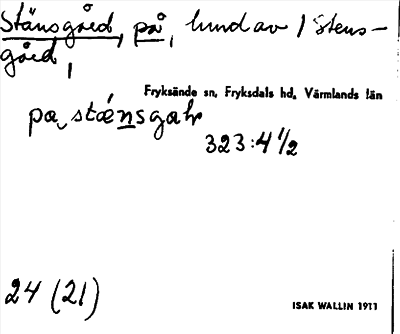 Stänsgård, på, lund av / Stens-
gård,
Fryksände sn, Fryksdals hd, Värmlands län
pa stǽnsgaḷr
323:4 1/2
24 (21)
ISAK WALLIN 1911